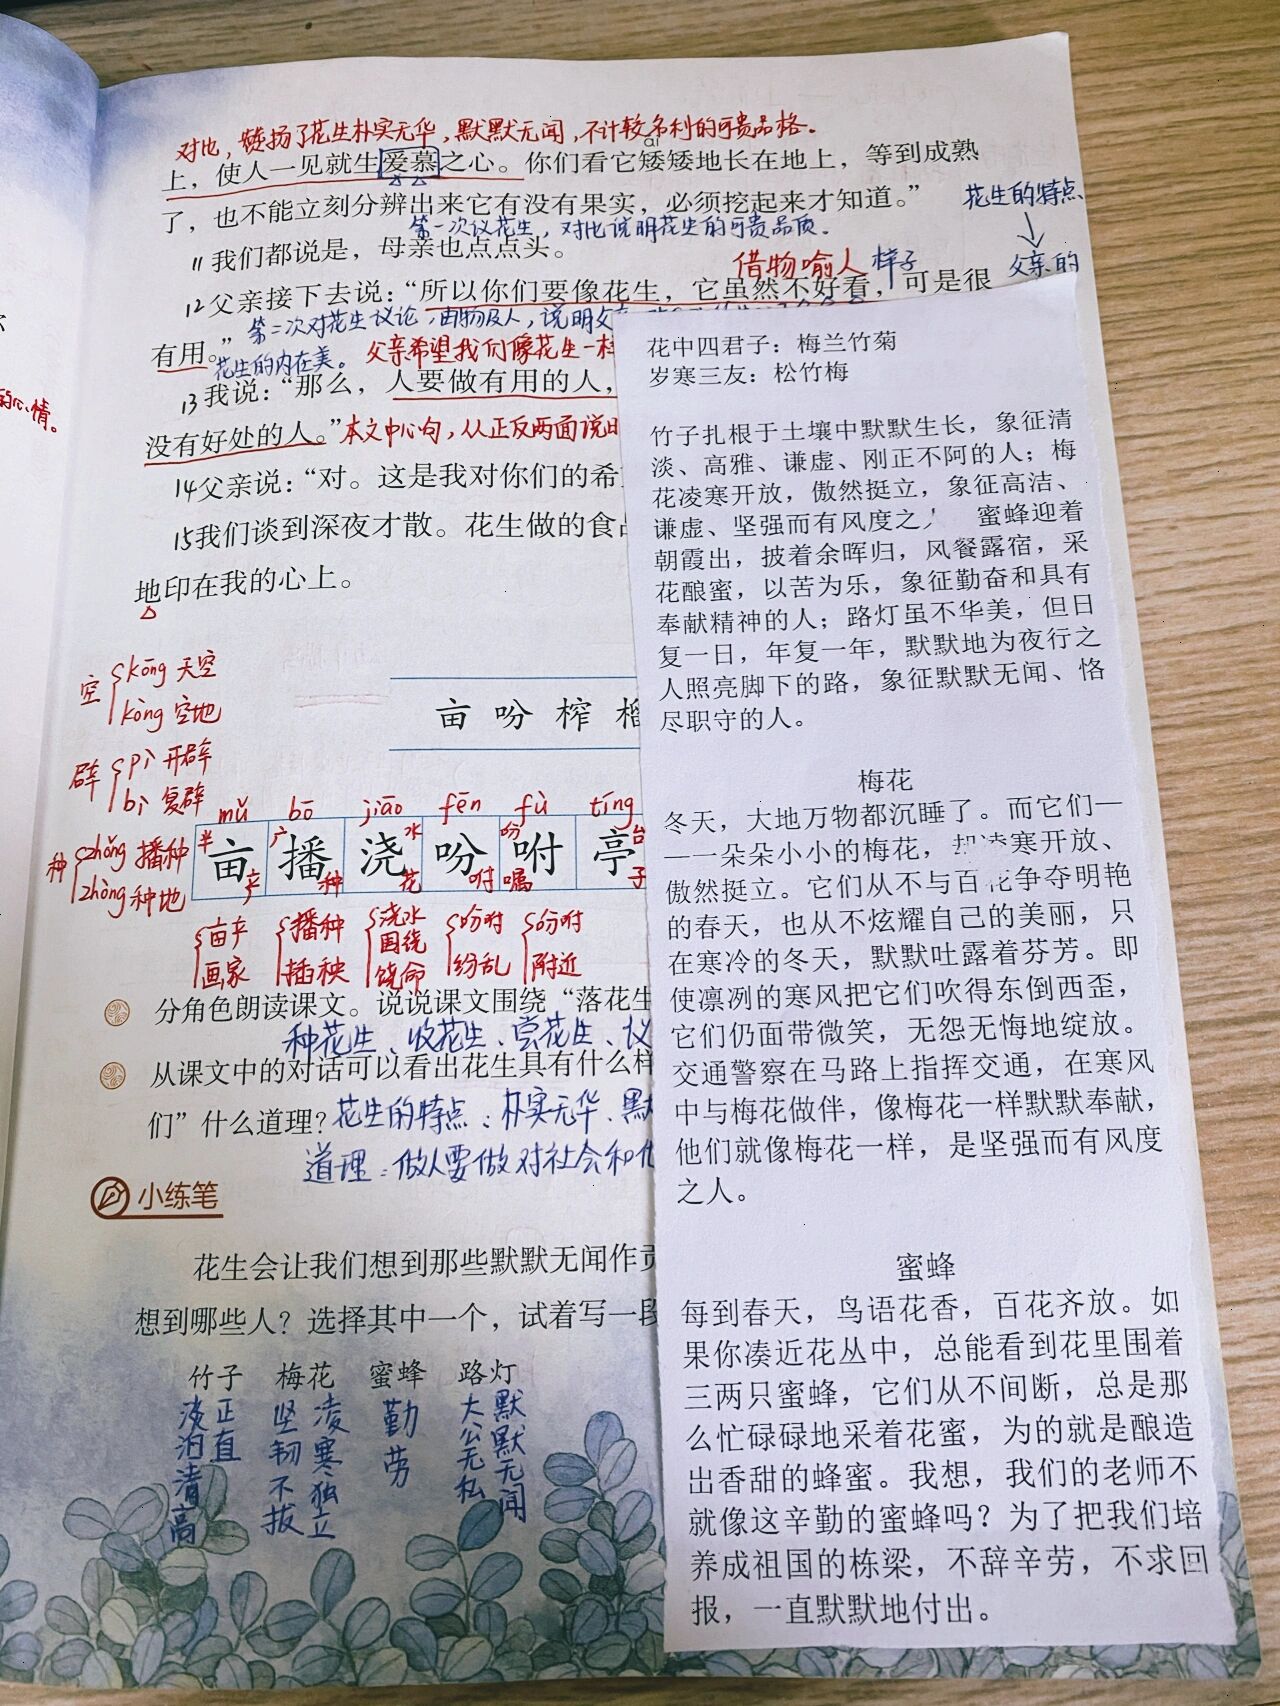 对比，赞扬了花生朴实无华，默默无闻，不计较名利的可贵品格。
上，使人一见就生爱慕之心。你们看它矮矮地长在地上，等到成熟
ǎi
了，也不能立刻分辨出来它有没有果实，必须挖起来才知道。”
花生的特点
第一次议花生，对比说明花生的可贵品质。
11我们都说是，母亲也点点头。
借物喻人 样子
父亲的
12父亲接下去说：“所以你们要像花生，它虽然不好看，可是很
第二次对花生议论，由物及人，说明父
有用。”
花生的内在美。父亲希望我们像花生一样
的心情。
13我说：“那么，人要做有用的人，
没有好处的人。”本文中心句，从正反两面说
14父亲说：“对。这是我对你们的希
15我们谈到深夜才散。花生做的食
地印在我的心上。
空 kōng 天空
kòng 空地
亩 吩 榨 榴
辟 pì 开辟
bì 复辟
mǔ bō jiāo fēn fù tíng
种 zhǒng 播种
zhòng 种地
亩 播 浇 吩 咐 亭
半 广 水 吩 台
产 种 花 咐 嘱 子
亩产 播种 浇水 吩咐 吩咐
围绕
画家 插秧 饶命 纷乱 附近
分角色朗读课文。说说课文围绕“落花生
种花生、收花生、尝花生、议
从课文中的对话可以看出花生具有什么样
们”什么道理？花生的特点：朴实无华、默
道理：做人要做对社会和他
小练笔
花生会让我们想到那些默默无闻作贡
想到哪些人？选择其中一个，试着写一段
竹子 梅花 蜜蜂 路灯
正直
淡泊清高
凌寒独立
坚韧不拔
勤劳
默默无闻
大公无私
花中四君子：梅兰竹菊
岁寒三友：松竹梅
竹子扎根于土壤中默默生长，象征清
淡、高雅、谦虚、刚正不阿的人；梅
花凌寒开放，傲然挺立，象征高洁、
谦虚、坚强而有风度之人 蜜蜂迎着
朝霞出，披着余晖归，风餐露宿，采
花酿蜜，以苦为乐，象征勤奋和具有
奉献精神的人；路灯虽不华美，但日
复一日，年复一年，默默地为夜行之
人照亮脚下的路，象征默默无闻、恪
尽职守的人。
梅花
冬天，大地万物都沉睡了。而它们—
—一朵朵小小的梅花，却凌寒开放、
傲然挺立。它们从不与百花争夺明艳
的春天，也从不炫耀自己的美丽，只
在寒冷的冬天，默默吐露着芬芳。即
使凛冽的寒风把它们吹得东倒西歪，
它们仍面带微笑，无怨无悔地绽放。
交通警察在马路上指挥交通，在寒风
中与梅花做伴，像梅花一样默默奉献，
他们就像梅花一样，是坚强而有风度
之人。
蜜蜂
每到春天，鸟语花香，百花齐放。如
果你凑近花丛中，总能看到花里围着
三两只蜜蜂，它们从不间断，总是那
么忙碌碌地采着花蜜，为的就是酿造
出香甜的蜂蜜。我想，我们的老师不
就像这辛勤的蜜蜂吗？为了把我们培
养成祖国的栋梁，不辞辛劳，不求回
报，一直默默地付出。